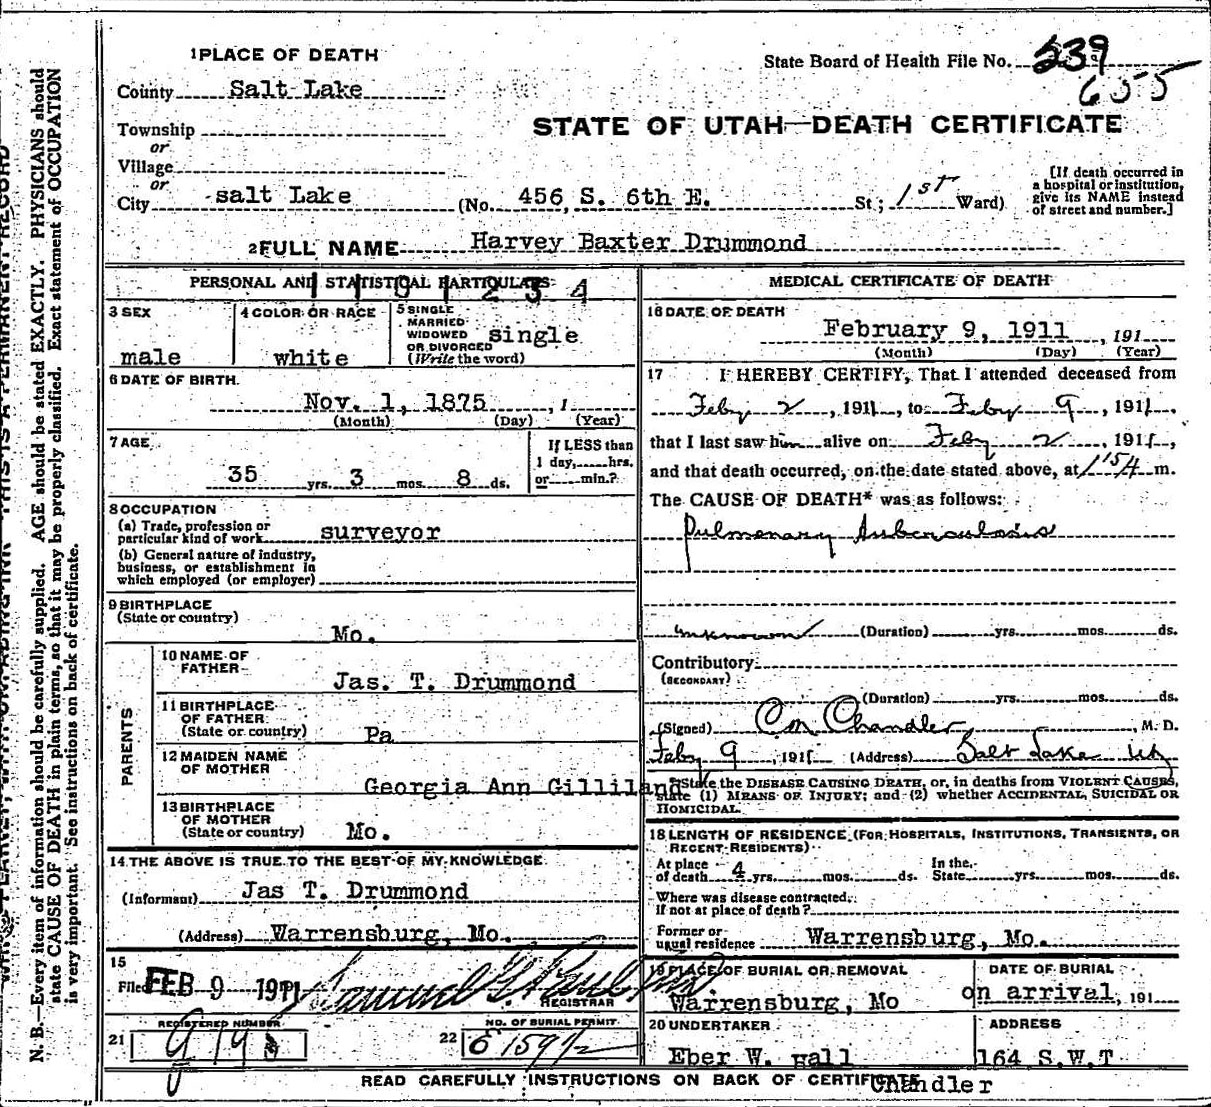 1 PLACE OF DEATH
State Board of Health File No. 239
655
County Salt Lake
STATE OF UTAH—DEATH CERTIFICATE
Township
or
Village
or
City salt Lake (No. 456 S. 6th E. St; 1st Ward)
[If death occurred in a hospital or institution, give its NAME instead of street and number.]
2 FULL NAME Harvey Baxter Drummond
PERSONAL AND STATISTICAL PARTICULARS
3 SEX
male
4 COLOR OR RACE
white
5 SINGLE
MARRIED
WIDOWED
OR DIVORCED
(Write the word)
single
6 DATE OF BIRTH
Nov. 1, 1875, 1
(Month) (Day) (Year)
7 AGE
35 yrs. 3 mos. 8 ds.
If LESS than
1 day, hrs.
or min.?
8 OCCUPATION
(a) Trade, profession or
particular kind of work surveyor
(b) General nature of industry,
business, or establishment in
which employed (or employer)
9 BIRTHPLACE
(State or country)
Mo.
PARENTS
10 NAME OF
FATHER
Jas. T. Drummond
11 BIRTHPLACE
OF FATHER
(State or country)
Pa
12 MAIDEN NAME
OF MOTHER
Georgia Ann Gilliland
13 BIRTHPLACE
OF MOTHER
(State or country)
Mo.
14 THE ABOVE IS TRUE TO THE BEST OF MY KNOWLEDGE
(Informant) Jas T. Drummond
(Address) Warrensburg, Mo.
15
Filed FEB 9 1911
REGISTRAR
REGISTERED NUMBER
21
NO. OF BURIAL PERMIT
22
MEDICAL CERTIFICATE OF DEATH
16 DATE OF DEATH
February 9, 1911, 191
(Month) (Day) (Year)
17 I HEREBY CERTIFY, That I attended deceased from
Feby 2, 1911, to Feby 9, 1911,
that I last saw him alive on Feby 2, 1911,
and that death occurred, on the date stated above, at 1:54 m.
The CAUSE OF DEATH* was as follows:
Pulmonary Tuberculosis
unknown (Duration) yrs. mos. ds.
Contributory
(SECONDARY)
(Duration) yrs. mos. ds.
(Signed) Chandler, M. D.
Feby 9, 1911 (Address) Salt Lake Ut
*State the DISEASE CAUSING DEATH, or, in deaths from VIOLENT CAUSES,
state (1) MEANS OF INJURY; and (2) whether ACCIDENTAL, SUICIDAL OR
HOMICIDAL.
18 LENGTH OF RESIDENCE (FOR HOSPITALS, INSTITUTIONS, TRANSIENTS, OR
RECENT RESIDENTS)
At place
of death 4 yrs. mos. ds.
In the
State yrs. mos. ds.
Where was disease contracted,
if not at place of death?
Former or
usual residence Warrensburg, Mo.
19 PLACE OF BURIAL OR REMOVAL
Warrensburg, Mo
DATE OF BURIAL
on arrival, 191
20 UNDERTAKER
Eber W. Hall
ADDRESS
164 S.W.T
READ CAREFULLY INSTRUCTIONS ON BACK OF CERTIFICATE
Chandler
N. B.—Every item of information should be carefully supplied. AGE should be stated EXACTLY. PHYSICIANS should
state CAUSE OF DEATH in plain terms, so that it may be properly classified. Exact statement of OCCUPATION
is very important. See instructions on back of certificate.